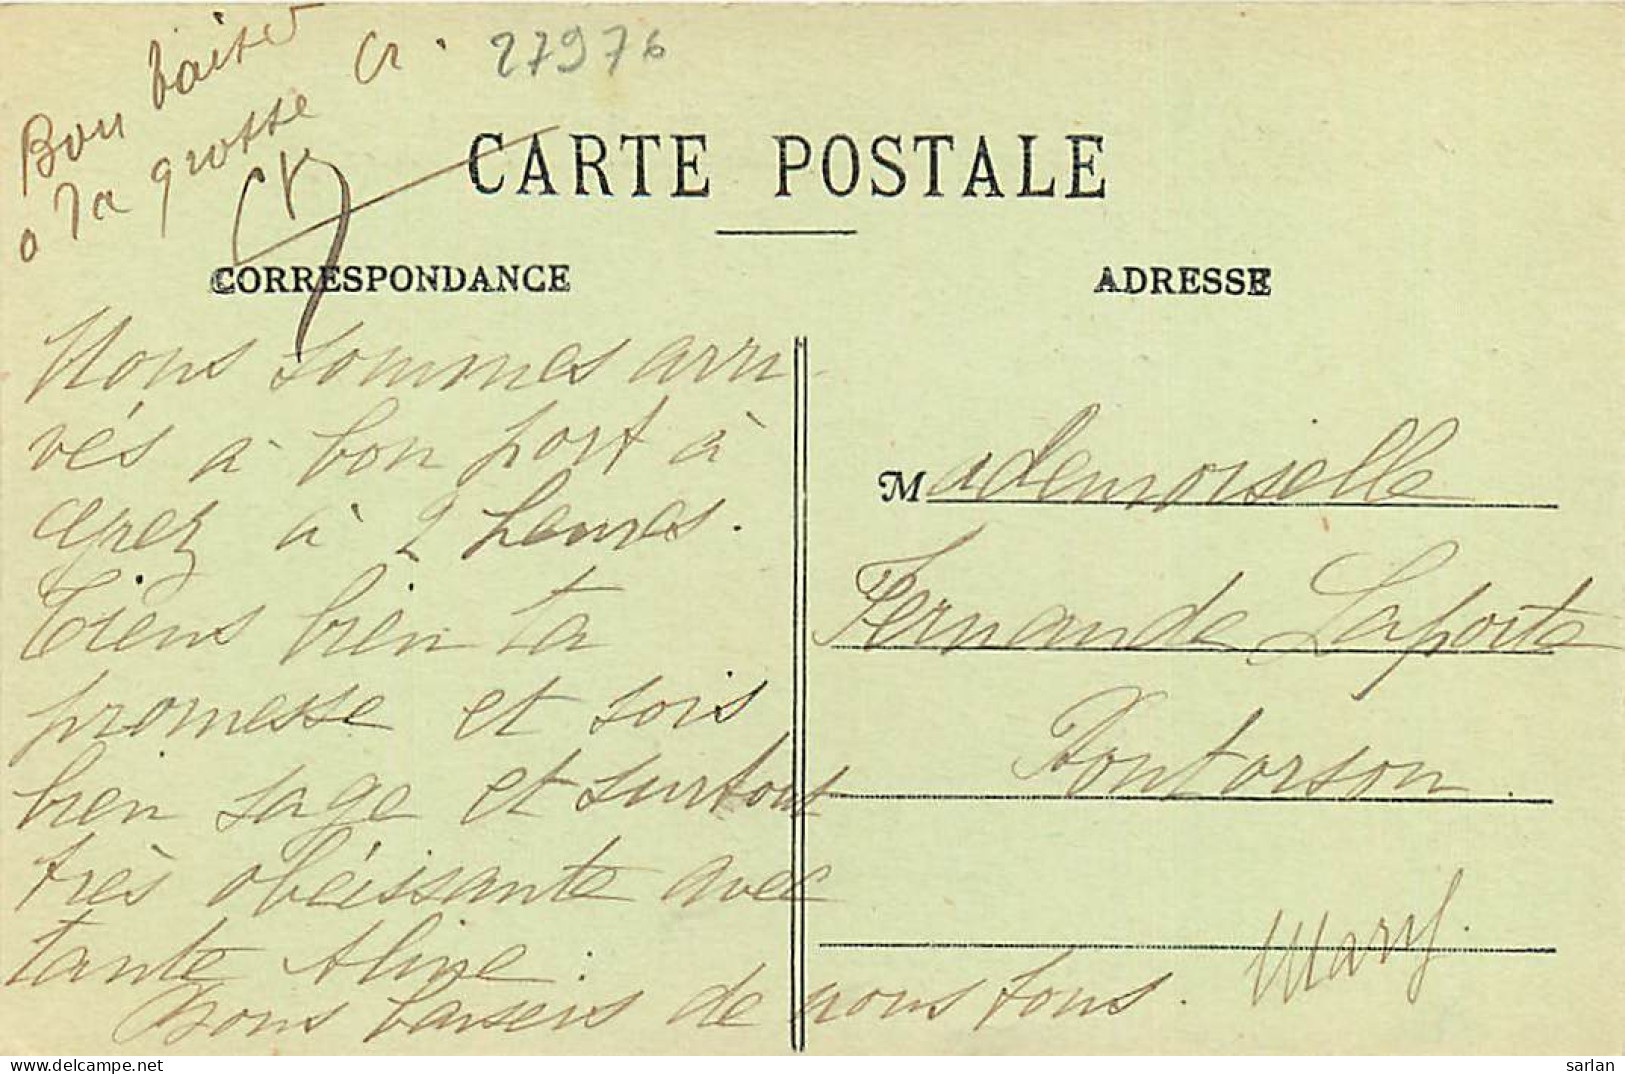 Bon baiser
a la grosse Cr.
27976
CARTE POSTALE
CORRESPONDANCE
ADRESSE
Nous sommes arri-
vés à bon port à
à 2 heures.
Tiens bien ta
promesse et sois
bien sage et surtout
très obéissante avec
tante Aline.
Bons baisers de nous tous.
Mademoiselle
Fernande Laporte
Pontorson.
sarlan